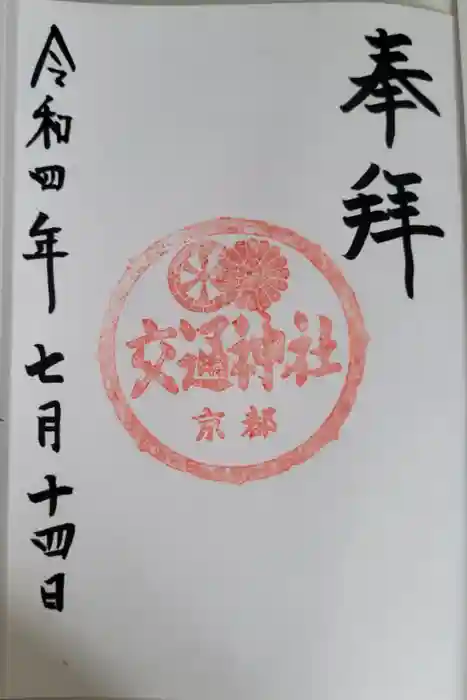 奉拝
交通神社
京都
令和四年七月十四日